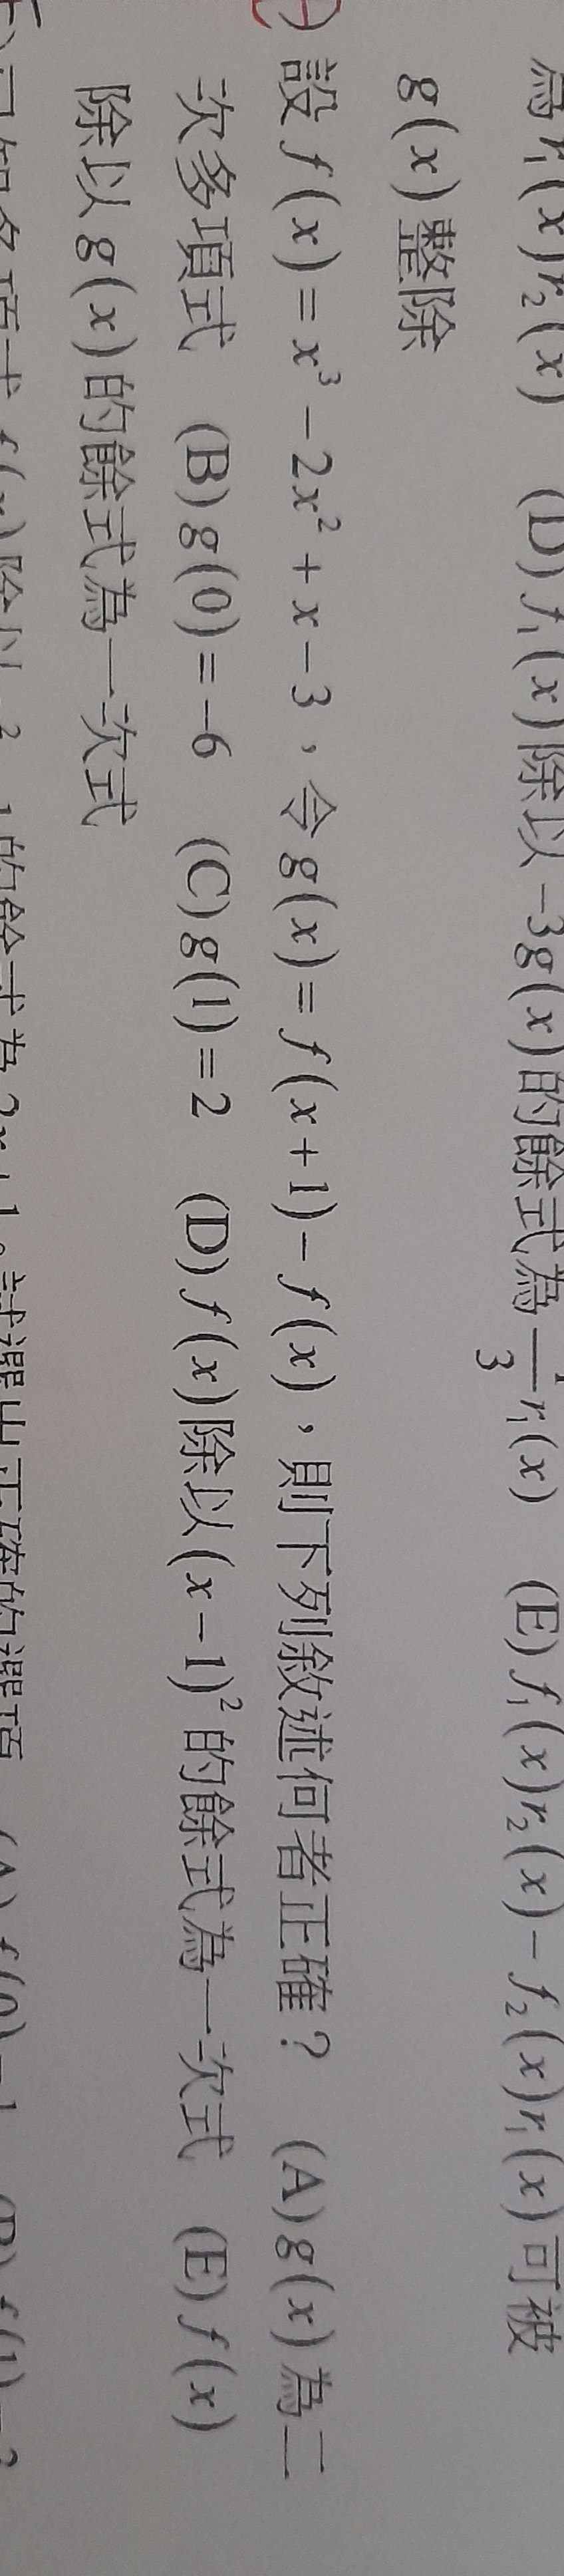 為 r₁(x)r₂(x) (D) f₁(x) 除以 -3g(x) 的餘式為 1/3 r₁(x) (E) f₁(x)r₂(x) - f₂(x)r₁(x) 可被
g(x) 整除
設 f(x) = x³ - 2x² + x - 3，令 g(x) = f(x+1) - f(x)，則下列敘述何者正確？ (A) g(x) 為二
次多項式 (B) g(0) = -6 (C) g(1) = 2 (D) f(x) 除以 (x-1)² 的餘式為一次式 (E) f(x)
除以 g(x) 的餘式為一次式
的餘式為 2x+1。試選出正確的選項